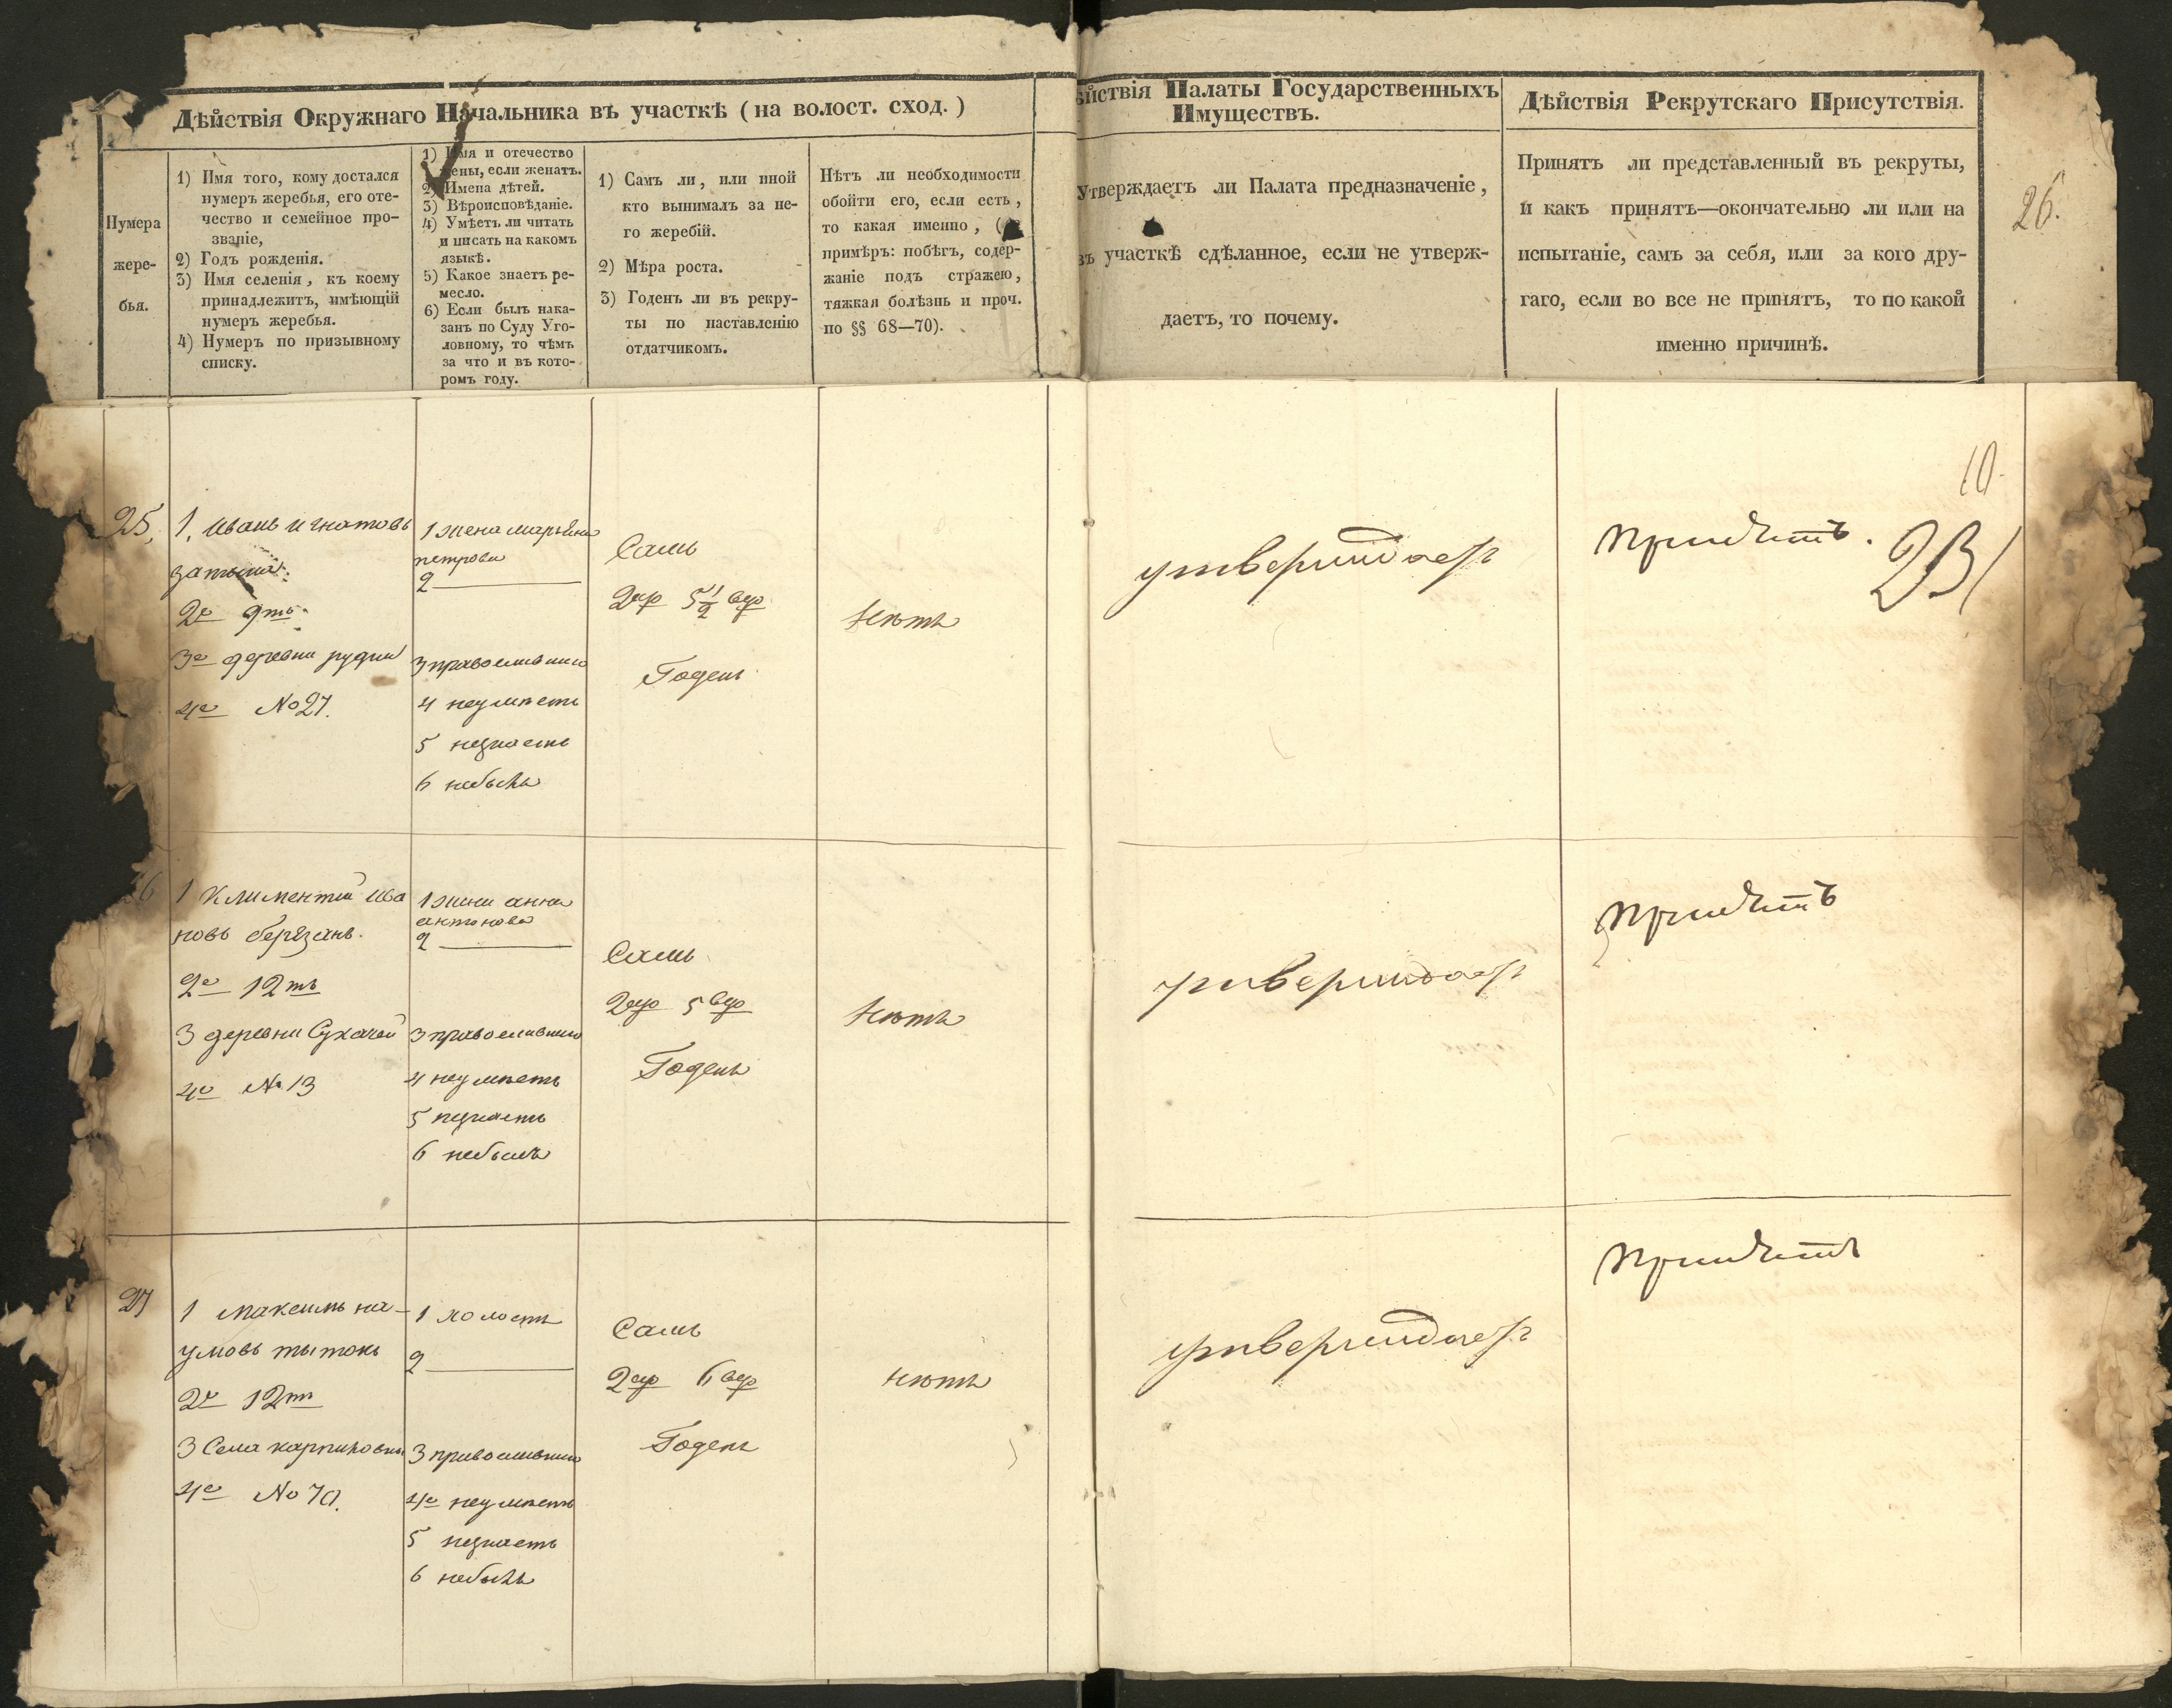 Дѣйствія Окружнаго Начальника въ участкѣ (на волост. сход.)
Нумера
жере-
бья.
1) Имя того, кому достался
нумеръ жеребья, его оте-
чество и семейное про-
званіе,
2) Годъ рожденія.
3) Имя селенія, къ коему
принадлежитъ, имѣющій
нумеръ жеребья.
4) Нумеръ по призывному
списку.
1) Имя и отечество
жены, если женатъ.
2) Имена дѣтей.
3) Вѣроисповѣданіе.
4) Умѣетъ ли читать
и писать на какомъ
языкѣ.
5) Какое знаетъ ре-
месло.
6) Если былъ нака-
занъ по Суду Уго-
ловному, то чѣмъ
за что и въ кото-
ромъ году.
1) Самъ ли, или иной
кто вынималъ за не-
го жеребій.
2) Мѣра роста.
3) Годенъ ли въ рекру-
ты по наставленію
отдатчикомъ.
Нѣтъ ли необходимости
обойти его, если есть,
то какая именно, (
примѣръ: побѣгъ, содер-
жаніе подъ стражею,
тяжкая болѣзнь и проч.
по §§ 68—70).
ѣйствія Палаты Государственныхъ
Имуществъ.
Утверждаетъ ли Палата предназначеніе,
въ участкѣ сдѣланное, если не утверж-
даетъ, то почему.
Дѣйствія Рекрутскаго Присутствія.
Принятъ ли представленный въ рекруты,
и какъ принятъ—окончательно ли или на
испытаніе, самъ за себя, или за кого дру-
гаго, если во все не принятъ, то по какой
именно причинѣ.
26.
10
25,
1, иванъ игнатовъ
2е 9тъ
3е деревни рудни
4е № 27.
1 жена марьяна
петрова
2
3 православнаго
4 неумѣетъ
5 незнаетъ
6 небылъ
Самъ
2ар 5 1/2 вер
Годенъ
нѣтъ
утверждает
Принятъ.
6
1 Климентій ива
новъ берязанъ.
2е 12тъ
3 деревни Сухачей
4е № 13
1 жена анна
антонова
2
3 православнаго
4 неумѣетъ
5 незнаетъ
6 небылъ
Самъ
2ар 5 вер
Годенъ
нѣтъ
утверждает
Принятъ
27
1 максимъ на-
умовъ тытокъ
2е 12тъ
3 Села карпиловки
4е № 70.
1 холостъ
2
3 православнаго
4е неумѣетъ
5 незнаетъ
6 небылъ
Самъ
2ар 6 вер
Годенъ
нѣтъ
утверждает
Принятъ